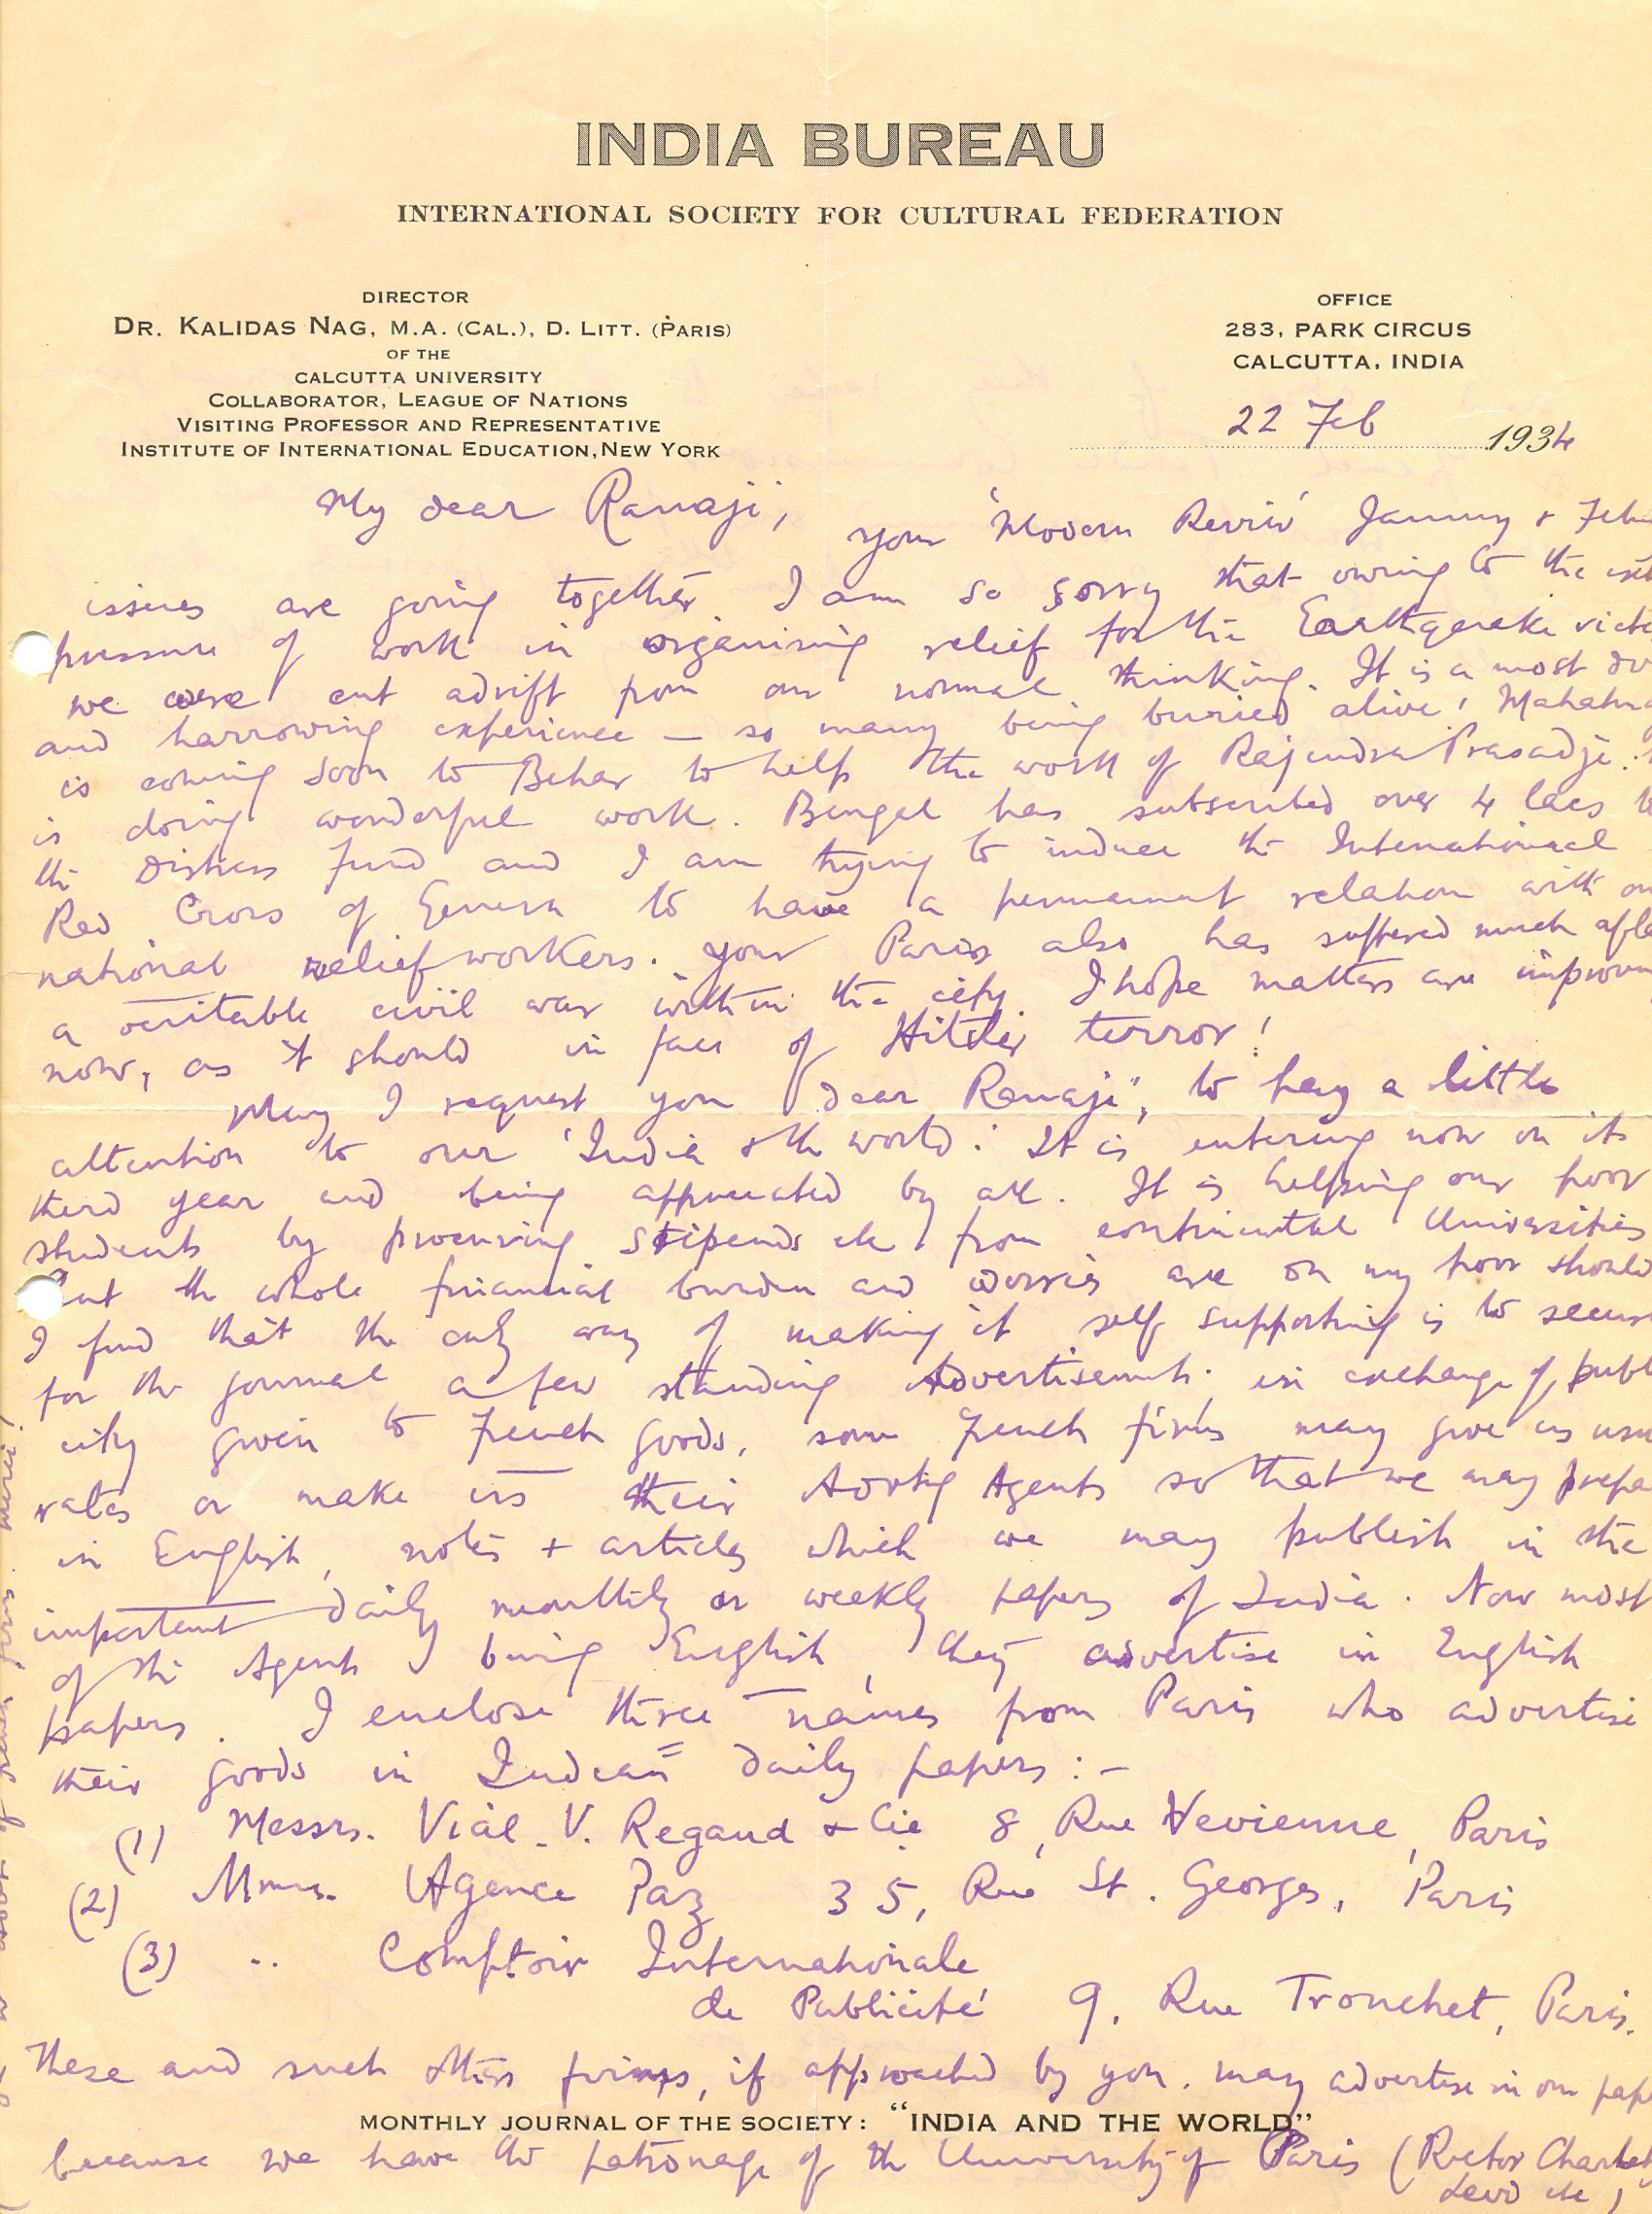 INDIA BUREAU
INTERNATIONAL SOCIETY FOR CULTURAL FEDERATION
DIRECTOR
DR. KALIDAS NAG, M.A. (CAL.), D. LITT. (PARIS)
OF THE
CALCUTTA UNIVERSITY
COLLABORATOR, LEAGUE OF NATIONS
VISITING PROFESSOR AND REPRESENTATIVE
INSTITUTE OF INTERNATIONAL EDUCATION, NEW YORK
OFFICE
283, PARK CIRCUS
CALCUTTA, INDIA
22 Feb 1934
My dear Ranaji,
your 'Modern Review' January & Febr
issues are going together. I am so sorry that owing to the
pressure of work in organising relief for the Earthquake victi
we were cut adrift from our normal thinking. It is a most
and harrowing experience — so many being buried alive! Mahatma
is coming soon to Behar to help the work of Rajendra Prasadji.
is doing wonderful work. Bengal has subscribed over 4 lacs to
the Distress Fund and I am trying to induce the International
Red Cross of Geneva to have a permanent relation with our
national relief workers. Your Paris also has suffered much after
a veritable civil war within the city. I hope matters are improvin
now, as it should in face of Hitler terror!
May I request you dear Ranaji, to pay a little
attention to our 'India & the world.' It is entering now on its
third year and being appreciated by all. It is helping our poor
students by procuring stipends etc from continental Universities
But the whole financial burden and worries are on my poor should
I find that the only way of making it self supporting is to secure
for the journal a few standing Advertisements in exchange of publi
city given to French goods, some French firms may give us usu
rates or make us their Advtg Agents so that we may prepa
in English, notes + articles which we may publish in the
important daily monthly or weekly papers of India. Now most
of the Agents being English, they advertise in English
papers. I enclose three names from Paris who advertise
their goods in Indian daily papers :-
(1) Messrs. Vial. V. Regaud & Cie 8, Rue Vevienne, Paris
(2) Messrs. Agence Paz 35, Rue St. Georges, Paris
(3) " Comptoir Internationale
de Publicité 9, Rue Tronchet, Paris.
These and such others firms, if approached by you, may advertise in our pape
MONTHLY JOURNAL OF THE SOCIETY: "INDIA AND THE WORLD"
because we have the patronage of the University of Paris (Rector Charlety
Levi etc)